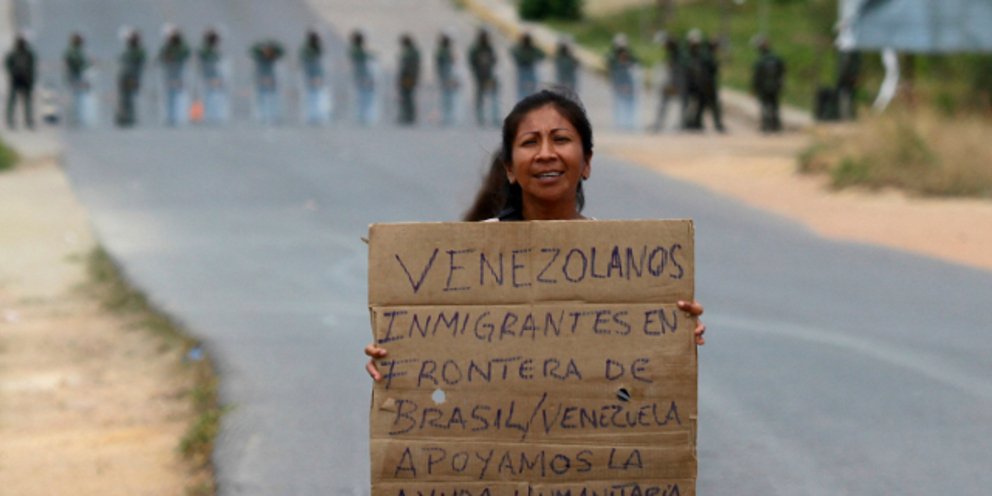 VENEZOLANOS
INMIGRANTES EN
FRONTERA DE
BRASIL/VENEZUELA
APOYAMOS LA
AYUDA HUMANITARIA